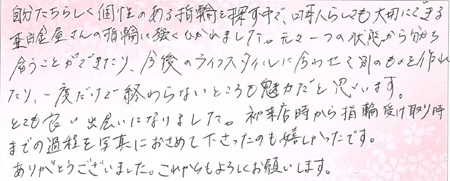 自分たちらしく個性のある指輪を探す中で、何年たっても大切にできる
杢目金屋さんの指輪に強くひかれました。元々一つの状態から分ち
合うことができたり、今後のライフスタイルに合わせて別のものを作れ
たり、一度だけで終わらないところも魅力だと思います。
とても良い出会いになりました。初来店時から指輪受け取り時
までの過程を写真におさめて下さったのも嬉しかったです。
ありがとうございました。これからもよろしくお願いします。